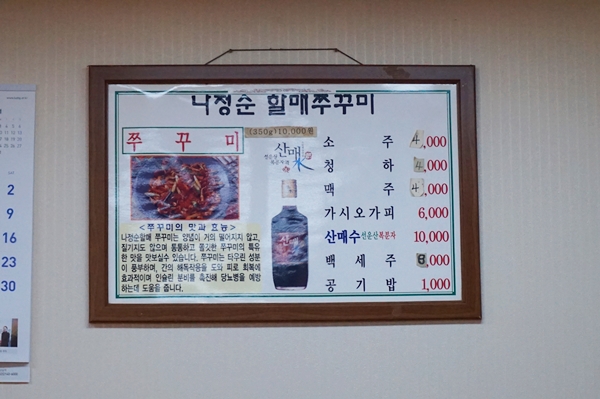 나정순 할매쭈꾸미
쭈꾸미
(350g)10,000원
산매
<쭈꾸미의 맛과 효능>
나정순할매 쭈꾸미는 양념이 거의 떨어지지 않고,
질기지도 않으며 통통하고 쫄깃한 쭈꾸미의 특유
한 맛을 맛보실수 있습니다. 쭈꾸미는 타우린 성분
이 풍부하며, 간의 해독작용을 도와 피로 회복에
효과적이며 인슐린 분비를 촉진해 당뇨병을 예방
하는데 도움을 줍니다.
소주 4,000
청하 4,000
맥주 4,000
가시오가피 6,000
산매수 선운산복분자 10,000
백세주 8,000
공기밥 1,000
2
9
16
23
30